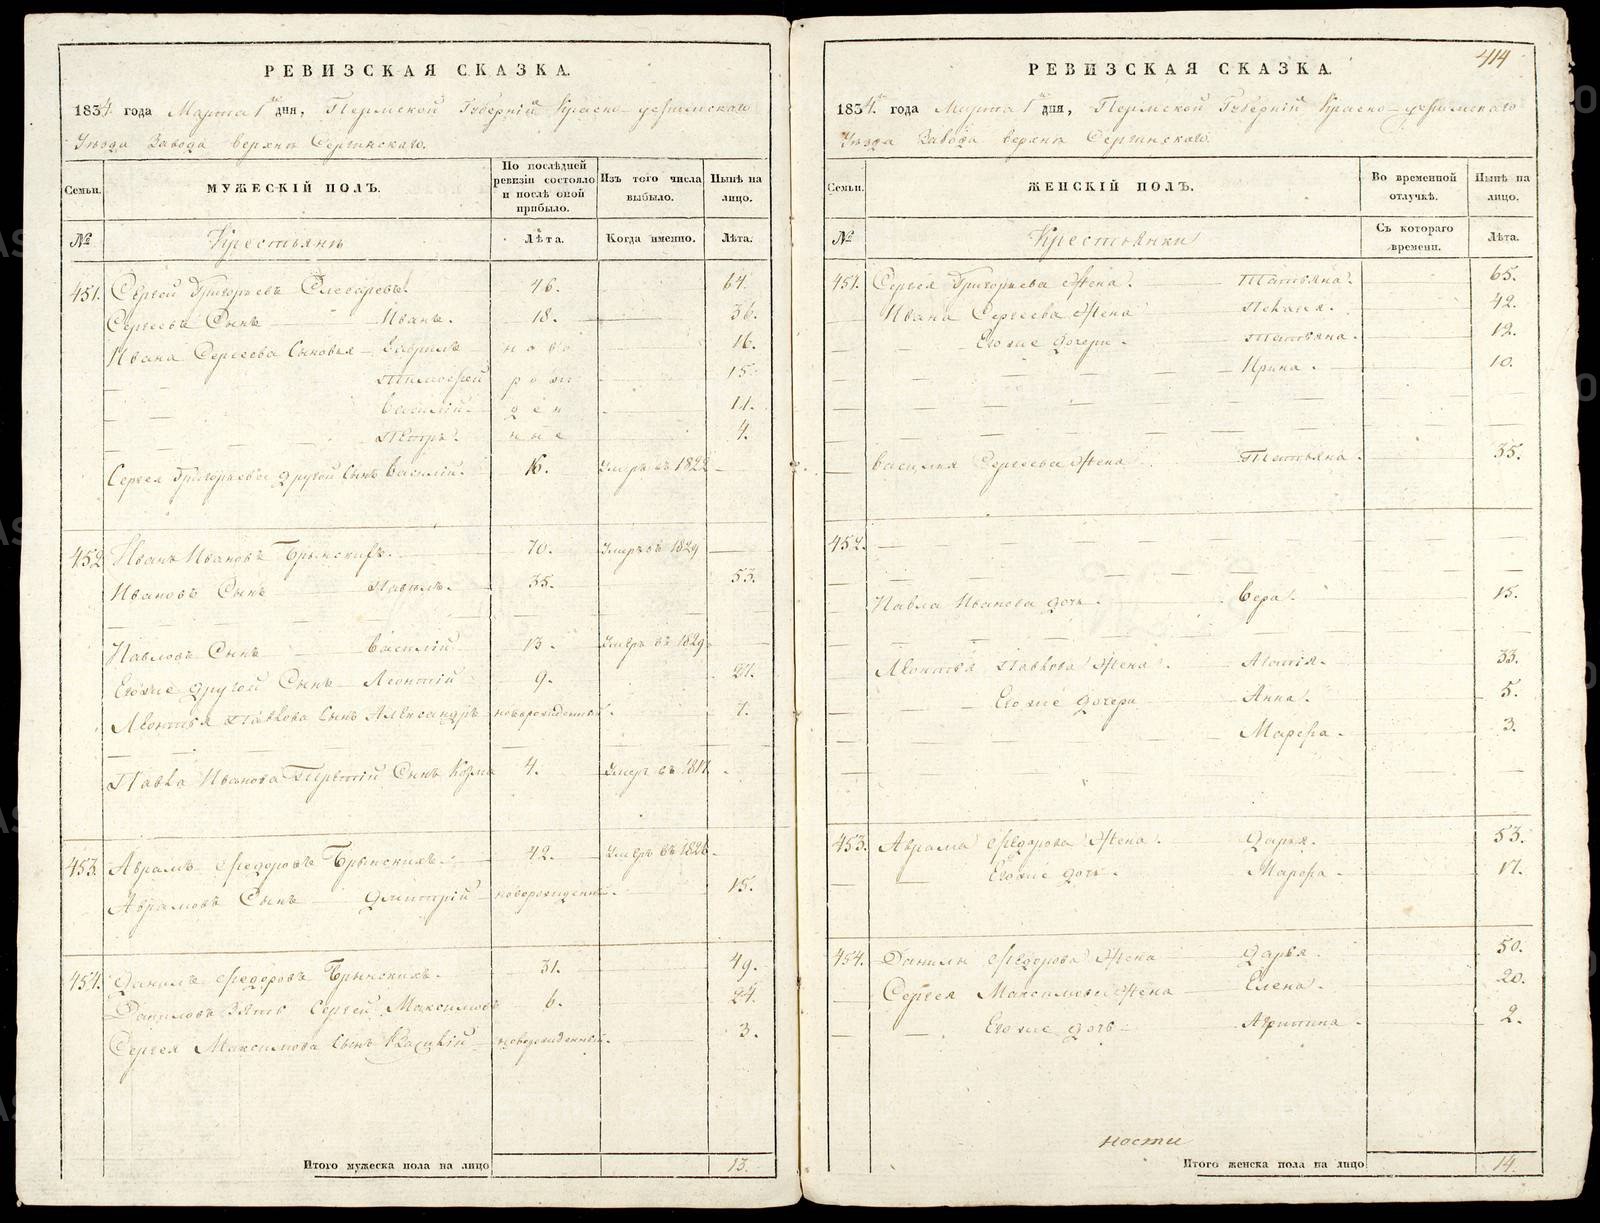 РЕВИЗСКАЯ СКАЗКА.
1834 года Марта 1 дня, Пермской Губернии Красно-уфимского
Уезда Завода верхне Сергинскаго.
Семьи.
МУЖЕСКІЙ ПОЛЪ.
По послѣдней ревизіи состояло и послѣ оной прибыло.
Изъ того числа выбыло.
Нынѣ на лицо.
№
Крестьянъ
Лѣта.
Когда именно.
Лѣта.
451. Сергей Григорьевъ 46. 64.
Сергеевъ Сынъ Иванъ. 18. 36.
Ивана Сергеева Сыновья Гаврилъ ново 16.
Тимофей рож 15.
Василій. ден 11.
Петръ. ные 4.
Сергея Григорьева другой Сынъ Василій. 16. Умеръ въ 1822
452 Иванъ Ивановъ 70. Умеръ въ 1829
Ивановъ Сынъ Павелъ. 35. 53.
Павловъ Сынъ Василій 13. Умеръ въ 1829
Егоже другой Сынъ Леонтій 9. 27.
Леонтья Павлова Сынъ Александръ новорожденный. 7.
Павла Иванова Третій Сынъ Козма 4. Умеръ въ
453. Аврамъ Федоровъ Брынскихъ. 42. Умеръ въ 1826.
Аврамовъ Сынъ Дмитрій новорожденный. 15.
454. Данилъ Федоровъ Брынскихъ. 31. 49.
Даниловъ Зять Сергей Максимовъ 6. 24.
Сергея Максимова Сынъ новорожденный. 3.
Итого мужеска пола на лицо 13.
414
РЕВИЗСКАЯ СКАЗКА.
1834 года Марта 1 дня, Пермской Губернии Красно-уфимского
Уезда Завода верхне Сергинскаго.
Семьи.
ЖЕНСКІЙ ПОЛЪ.
Во временной отлучкѣ.
Нынѣ на лицо.
№
Крестьянки
Съ котораго времени.
Лѣта.
451. Сергея Григорьева Жена. Татьяна. 65.
Ивана Сергеева Жена Пелагея. 42.
Егоже дочери. Татьяна. 12.
Ирина. 10.
Василия Сергеева Жена Татьяна. 35.
452.
Павла Иванова дочь. Вера. 15.
Леонтья Павлова Жена. 33.
Егоже дочери Анна. 5.
Марфа. 3.
453. Аврама Федорова Жена. Дарья. 53.
Егоже дочь. Марфа. 17.
454. Данилы Федорова Жена Дарья. 50.
Сергея Максимова Жена Елена. 20.
Егоже дочь 2.
Итого женска пола на лицо 14.